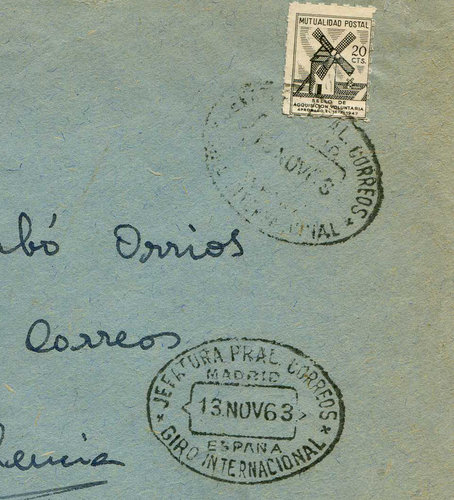 MUTUALIDAD POSTAL
20
CTS.
SELLO DE
ADQUISICION VOLUNTARIA
PRAL. CORREOS
13 NOV 63
Orrios
Correos
JEFATURA PRAL. CORREOS
MADRID
13.NOV 63
ESPAÑA
* GIRO INTERNACIONAL *